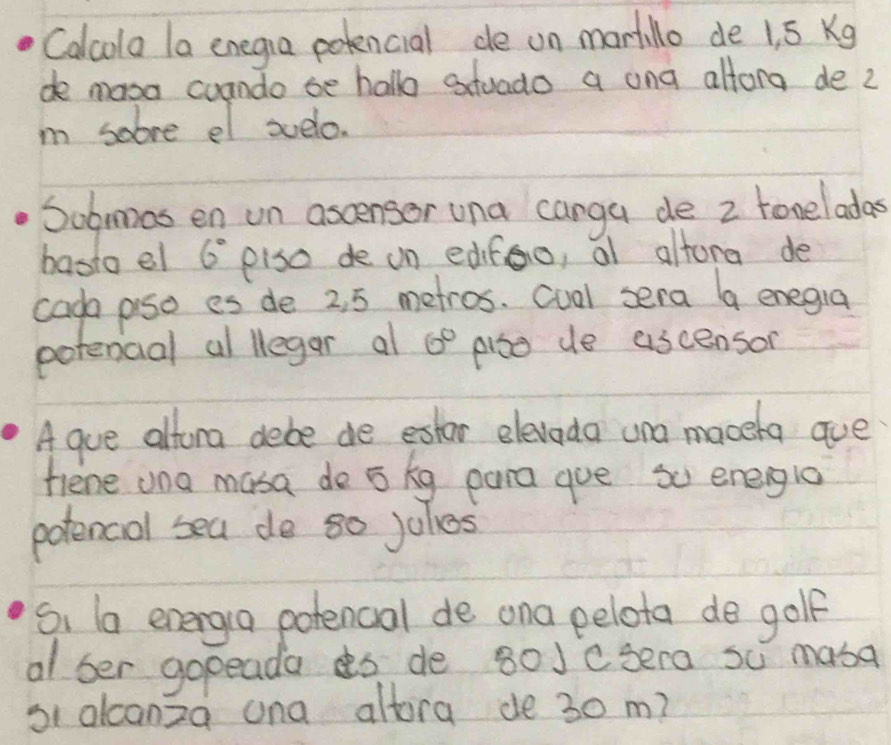 • Calcula la enegia potencial de un martillo de 1,5 Kg
de masa cuando se halla situado a una altura de 2
m sobre el suelo.
• Subimos en un ascensor una carga de 2 toneladas
hasta el 6° piso de un edificio, al altura de
cada piso es de 2,5 metros. Cual sera la enegia
potencial al llegar al 6° piso de ascensor
• A que altura debe de estar elevada una maceta que
tiene una masa de 5 kg para que su energia
potencial sea de 80 julies
• Si la energia potencial de una pelota de golf
al ser gopeada es de 80J Csera su masa
si alcanza una altura de 30 m?